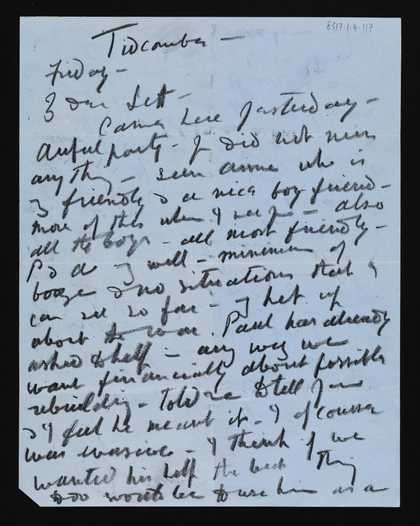 8317.1.4.117
Tidcombe –
Friday –
Dear Lett –
Came here yesterday –
Awful party – I did not miss
anything – seen Anne who is
v friendly & a nice boy friend –
more of this when I see you – also
all the boys – all most friendly –
P & a v well – minimum of
booze & no situations that I
can see so far – v het up
about the war. Paul has already
asked to help – any way we
want financially about possible
rebuilding – told me to tell you
& I feel he meant it – I of course
was evasive – I think if we
wanted his help the best thing
to do would be to use him as a